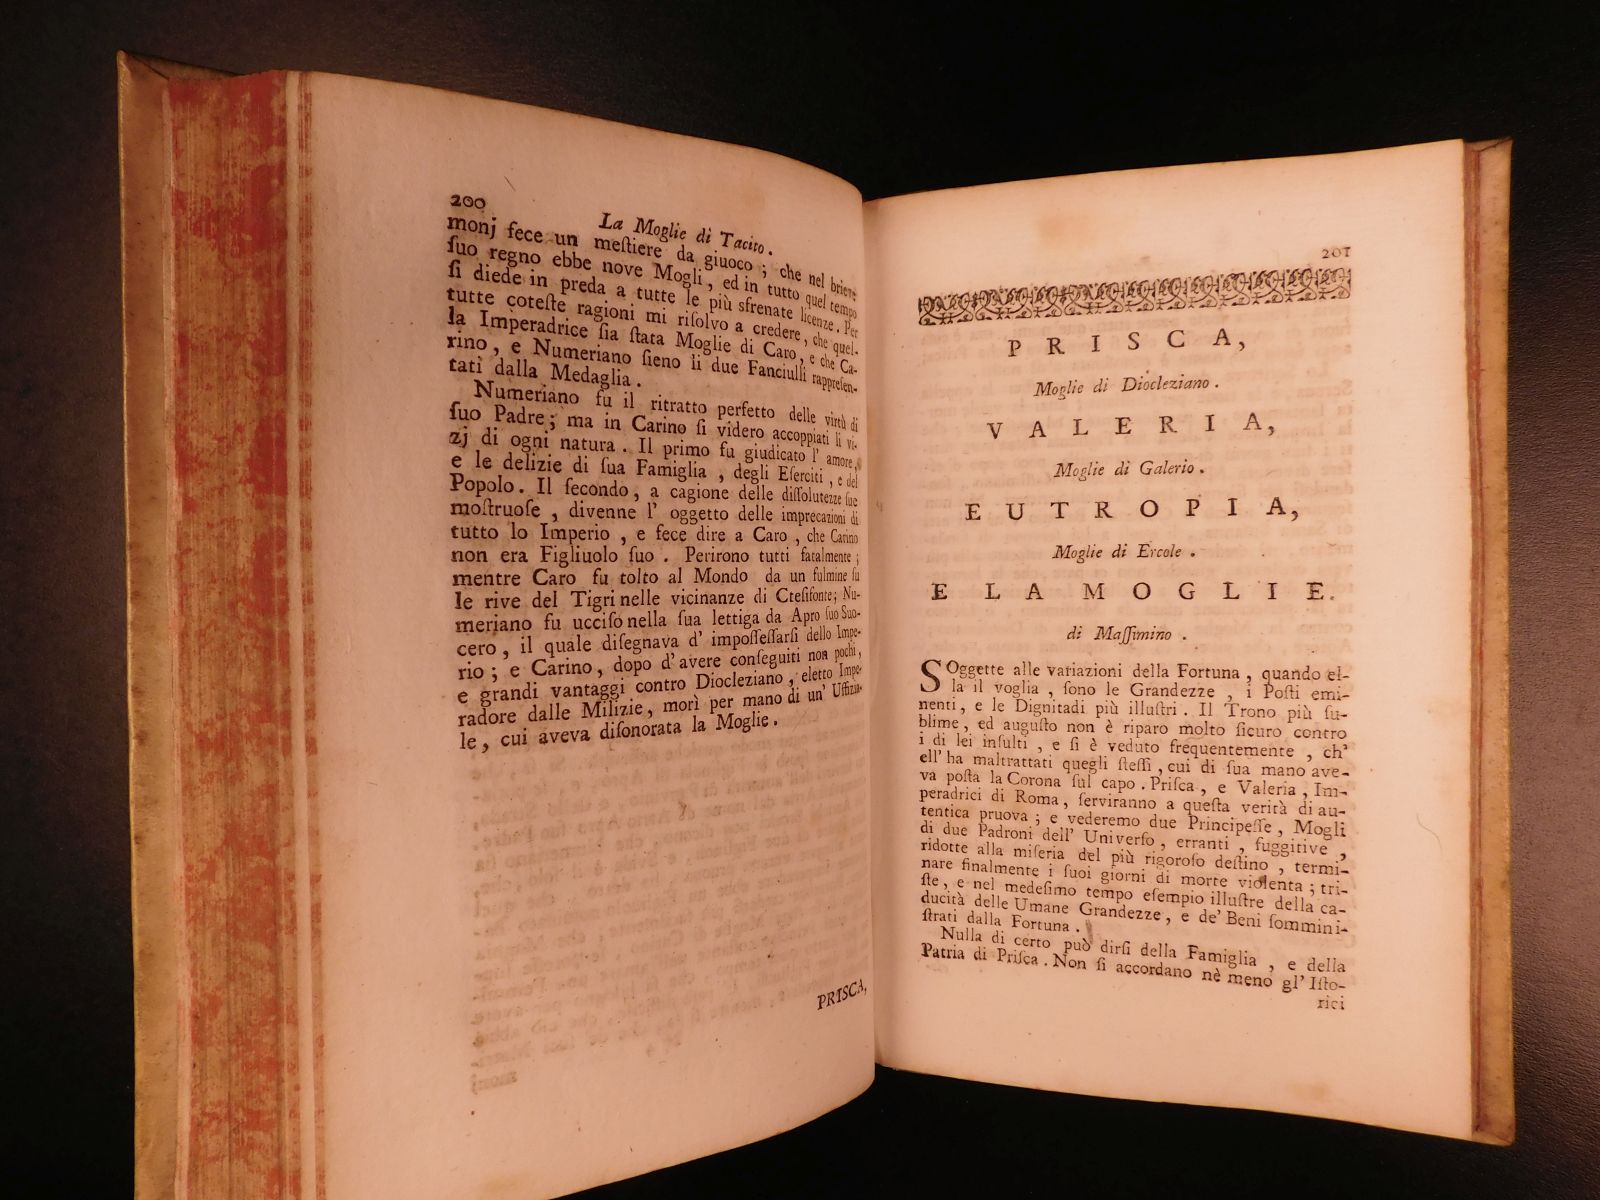 200
La Moglie di Tacito.
monj fece un meſtiere da giuoco; che nel brieve
ſuo regno ebbe nove Mogli, ed in tutto quel tempo
ſi diede in preda a tutte le più sfrenate licenze. Per
tutte coteſte ragioni mi riſolvo a credere, che quel-
la Imperadrice ſia ſtata Moglie di Caro, e che Ca-
rino, e Numeriano ſieno li due Fanciulli rappreſen-
tati dalla Medaglia.
Numeriano fu il ritratto perfetto delle virtù di
ſuo Padre; ma in Carino ſi videro accoppiati li vi-
zj di ogni natura. Il primo fu giudicato l' amore,
e le delizie di ſua Famiglia, degli Eſerciti, e del
Popolo. Il ſecondo, a cagione delle diſſolutezze ſue
moſtruoſe, divenne l' oggetto delle imprecazioni di
tutto lo Imperio, e fece dire a Caro, che Carino
non era Figliuolo ſuo. Perirono tutti fatalmente;
mentre Caro fu tolto al Mondo da un fulmine ſu
le rive del Tigri nelle vicinanze di Cteſifonte; Nu-
meriano fu ucciſo nella ſua lettiga da Apro ſuo Suo-
cero, il quale diſegnava d' impoſſeſſarſi dello Impe-
rio; e Carino, dopo d' avere conſeguiti non pochi,
e grandi vantaggi contro Diocleziano, eletto Impe-
radore dalle Milizie, morì per mano di un' Uffizia-
le, cui aveva diſonorata la Moglie.
PRISCA,
201
PRISCA,
Moglie di Diocleziano.
VALERIA,
Moglie di Galerio.
EUTROPIA,
Moglie di Ercole.
E LA MOGLIE
di Maſſimino.
SOggette alle variazioni della Fortuna, quando el-
la il voglia, ſono le Grandezze, i Poſti emi-
nenti, e le Dignitadi più illuſtri. Il Trono più ſu-
blime, ed auguſto non è riparo molto ſicuro contro
i di lei inſulti, e ſi è veduto frequentemente, ch'
ell' ha maltrattati quegli ſteſſi, cui di ſua mano ave-
va poſta la Corona ſul capo. Priſca, e Valeria, Im-
peradrici di Roma, ſerviranno a queſta verità di au-
tentica pruova; e vederemo due Principeſſe, Mogli
di due Padroni dell' Univerſo, erranti, fuggitive,
ridotte alla miſeria del più rigoroſo deſtino, termi-
nare finalmente i ſuoi giorni di morte violenta; tri-
ſte, e nel medeſimo tempo eſempio illuſtre della ca-
ducità delle Umane Grandezze, e de' Beni ſommini-
ſtrati dalla Fortuna.
Nulla di certo può dirſi della Famiglia, e della
Patria di Priſca. Non ſi accordano nè meno gl' Iſto-
rici